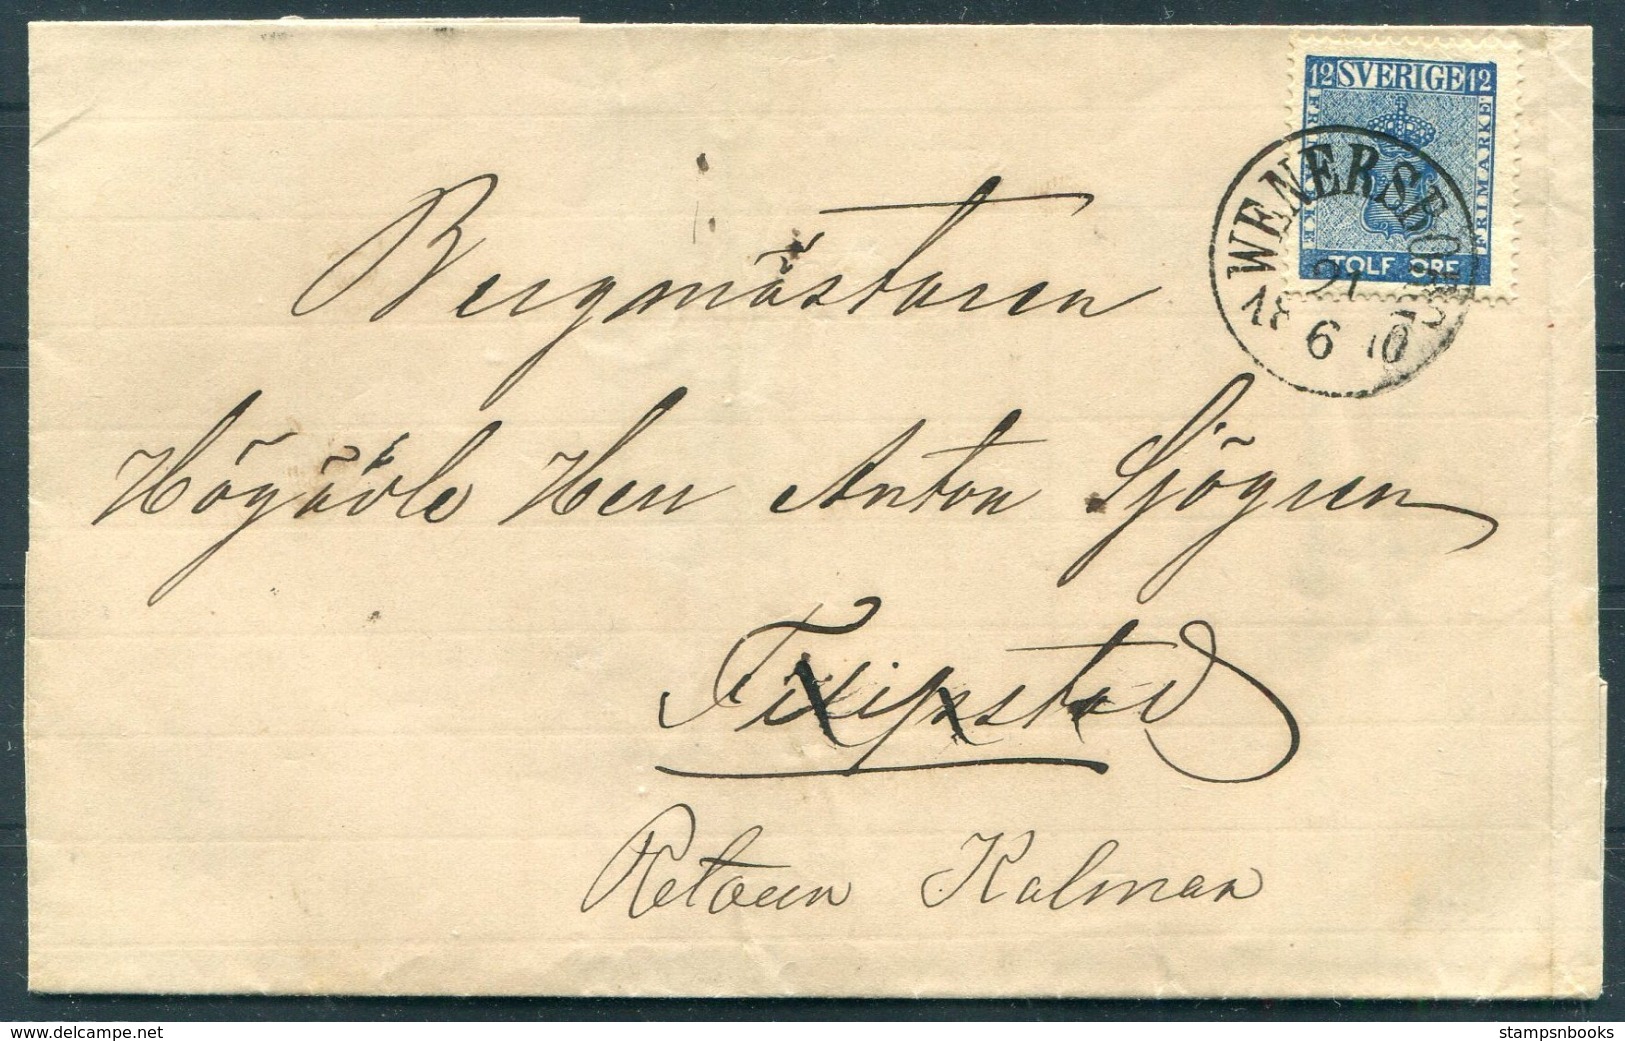 12 SVERIGE 12
FRIMARKE
FRIMARKE
TOLF ÖRE
WENERSBORG
21
18 6
Bergmästaren
Högädle Herr Anton Sjögren
Filipstad
Retour Kalmar
www.delcampe.net
stampsnbooks